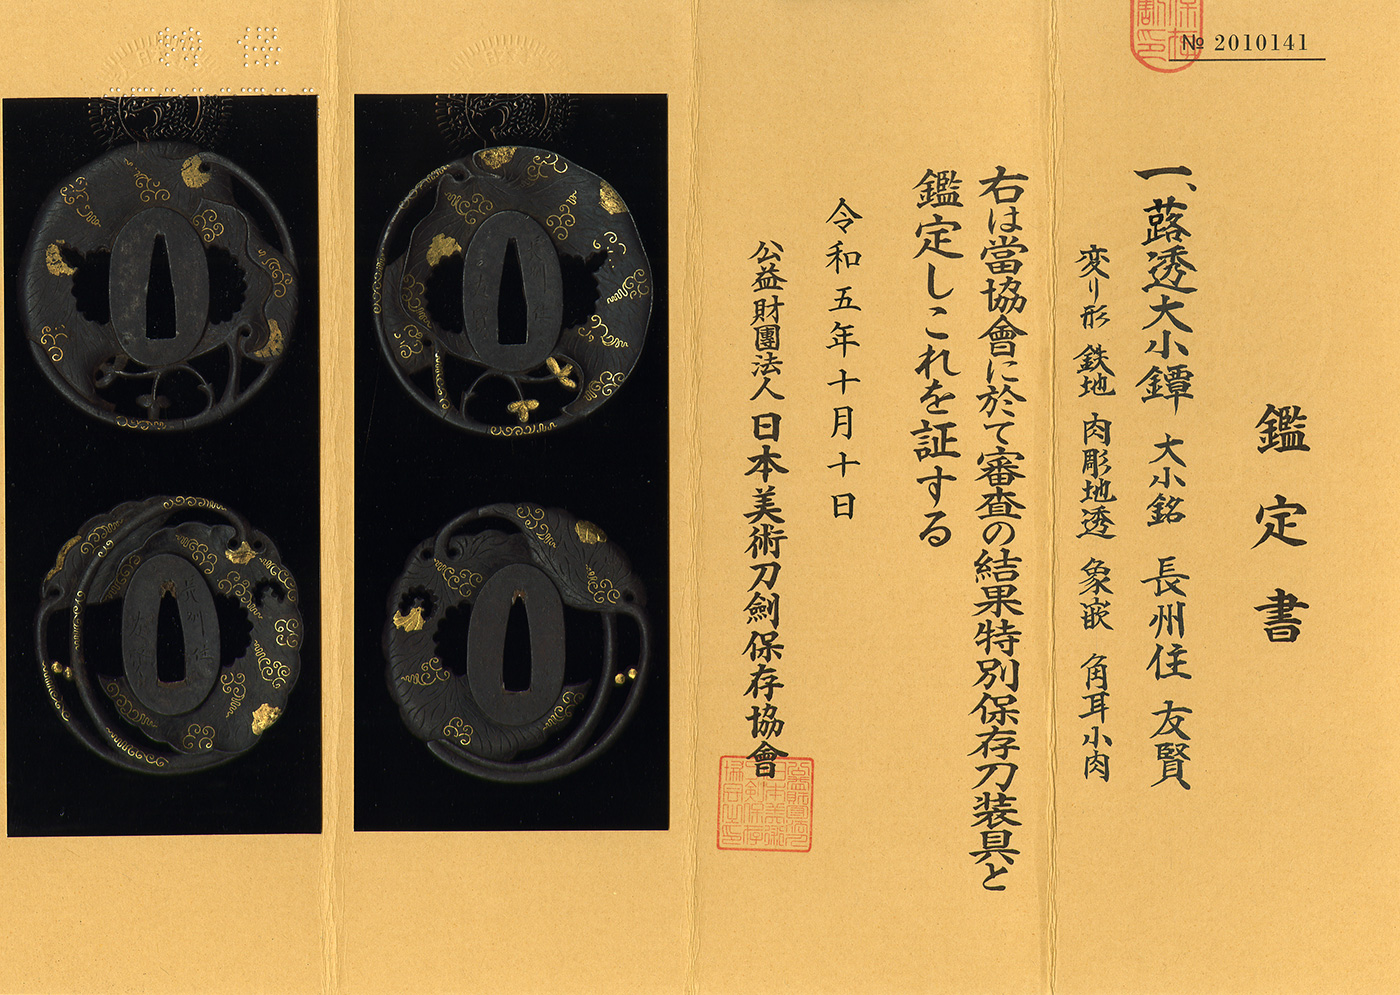 № 2010141
鑑定書
一、蕗透大小鐔 大小銘 長州住 友賢
変り形 鉄地 肉彫地透 象嵌 角耳小肉
右は當協會に於て審査の結果特別保存刀装具と
鑑定しこれを証する
令和五年十月十日
公益財團法人 日本美術刀劍保存協會